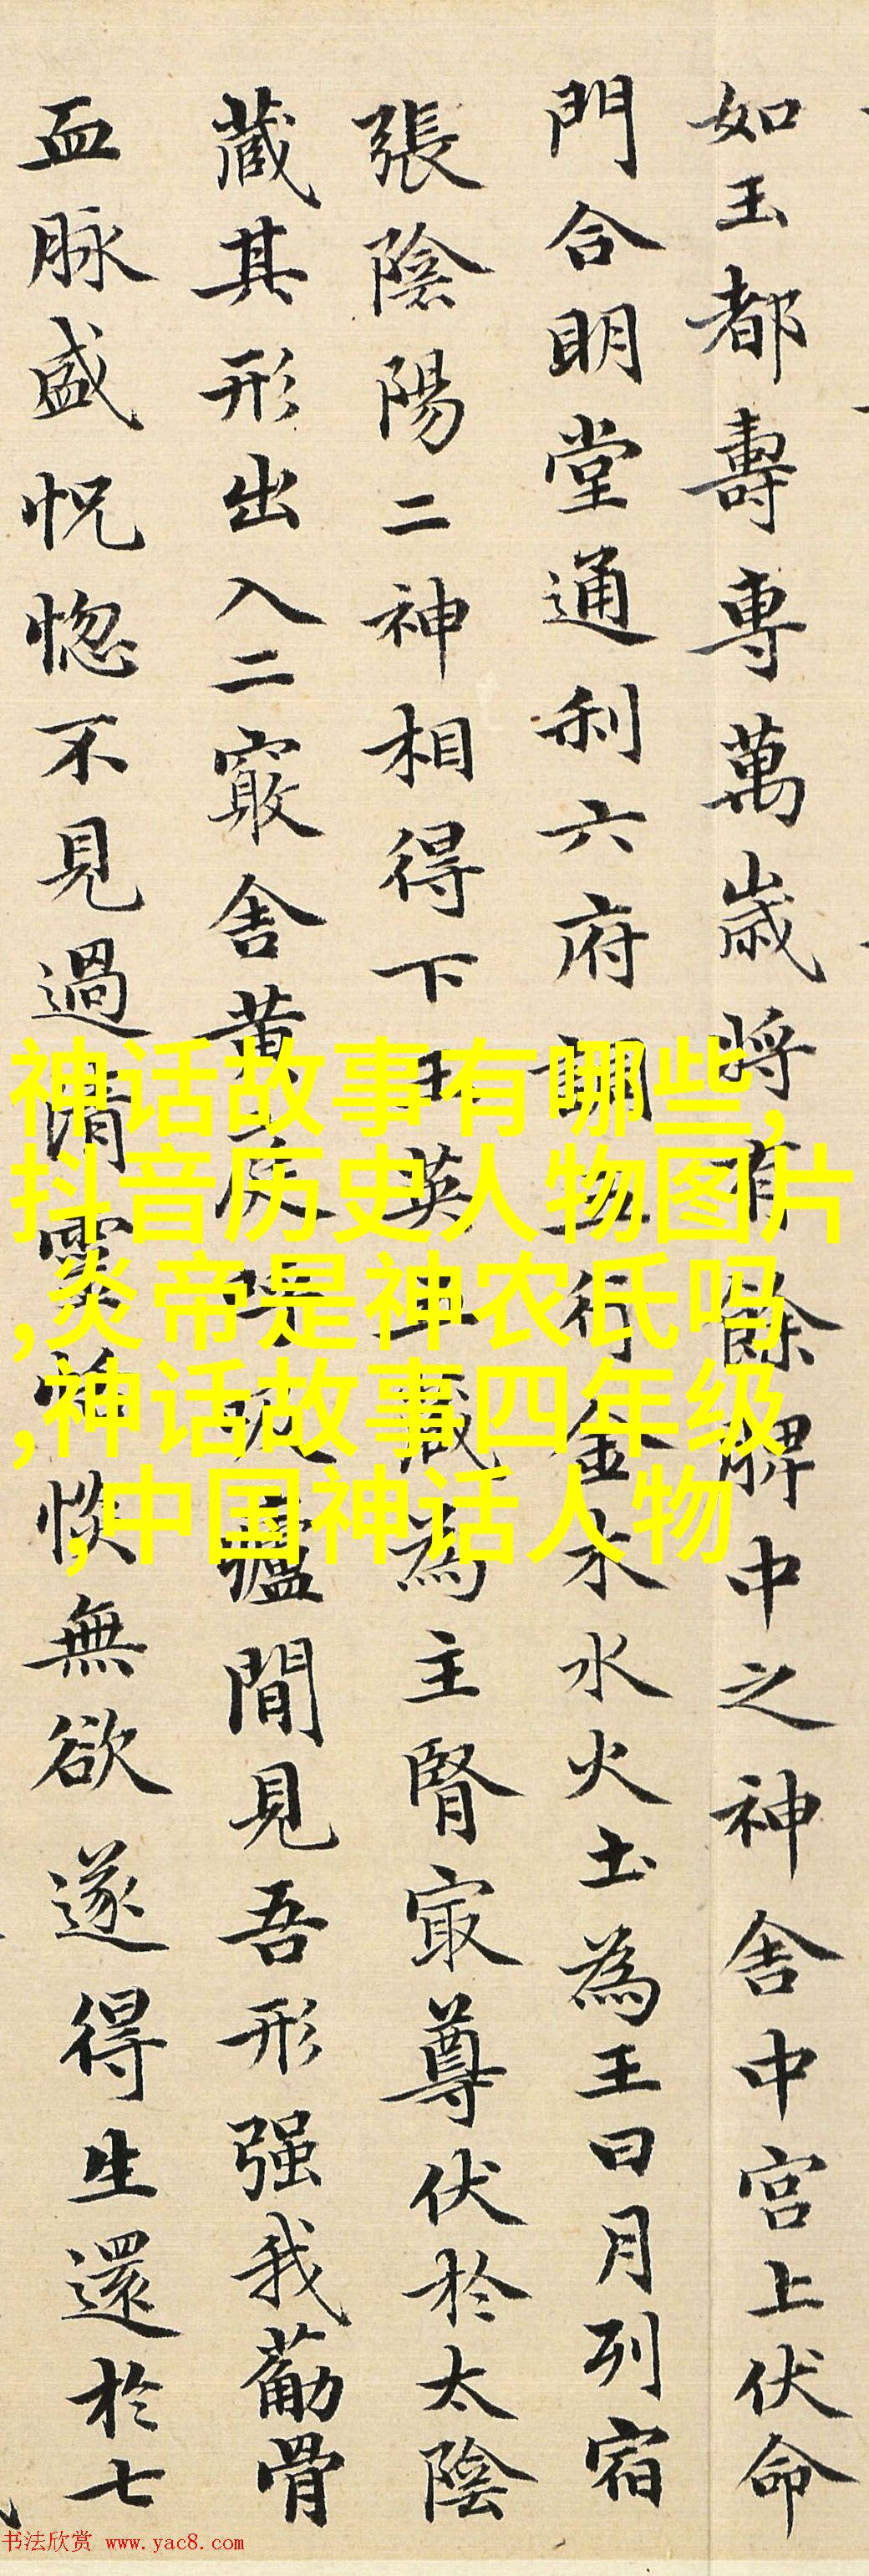 如玉都壽專萬歲將有餘脾中之神舍中宮上伏命
門合明堂通利六府調五行金木水火土為王日月列宿
張陰陽二神相得下玉英五藏為主腎寂尊伏於太陰
藏其形出入二竅舍黃庭呼吸廬間見吾形强我筋骨
血脉盛怳惚不見過清靈恬惔無欲遂得生還於七
神话故事有哪些,
抖音历史人物图片
,炎帝是神农氏吗
,神话故事四年级
,中国神话人物
书法欣赏 www.yac8.com